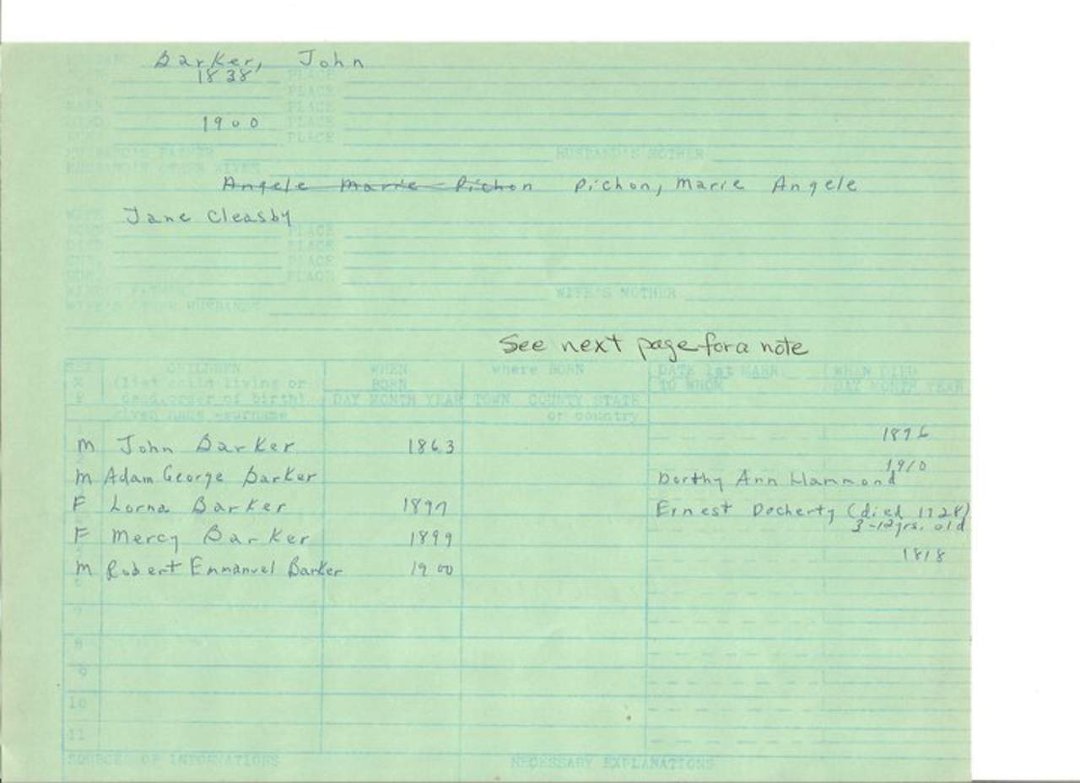 Barker, John
1838 PLACE
PLACE
PLACE
1900 PLACE
PLACE
HUSBAND'S MOTHER
Angele Marie Pichon Pichon, Marie Angele
Jane Cleasby
PLACE
PLACE
PLACE
PLACE
WIFE'S MOTHER
See next page for a note
CHILDREN WHEN where BORN DATE 1st MARR WHEN DIED
(list child living or BORN TO WHOM DAY MONTH YEAR
dead, order of birth) DAY MONTH YEAR TOWN COUNTY STATE
given name surname or country
M John Barker 1863 1896
M Adam George Barker Dorthy Ann Hammond 1910
F Lorna Barker 1897 Ernest Docherty (died 1928)
3-12yrs. old
F Mercy Barker 1899
M Robert Emmanuel Barker 1900 1818
7
8
9
10
11
SOURCES OF INFORMATIONS NECESSARY EXPLANATIONS